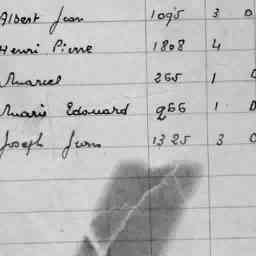 Albert Jean 1095 3 0
Henri Pierre 1808 4
Marcel 265 1 0
Marie Edouard 966 1 0
Joseph 1325 3 0